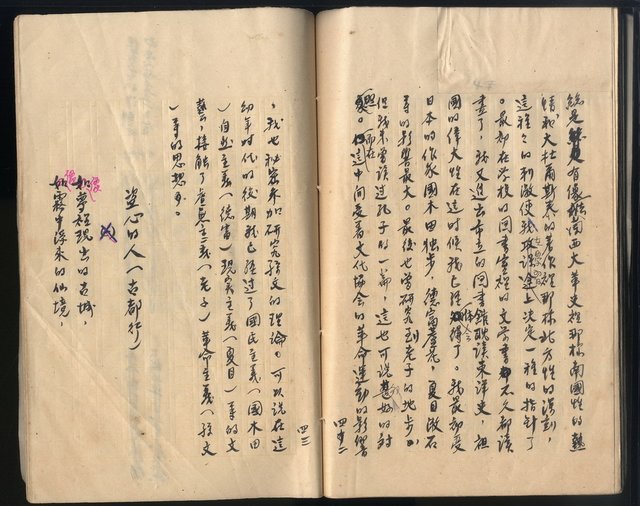 總是有像羅南西大革史裡那樣南國性的熱
情和大杜爾斯泰的著作裡那樣北方性的深刻,
這種々的刺激使我攻讀途上決定一種的指針了
。最部在学校的図書室裡的文学書不久都讀
盡了,我又進去市立的図書館耽讀東洋史,祖
國的偉大性在這時候我已經得了。我最部受
日本的作家國木田独步,德富蘆花,夏目漱石
等的影響最大。最後也曾研究到老子的地步。
但我未曾讀过孔子的一篇,這也可说旧的对
。而在這中间受着文化協会的革命運動的影響
四十二
,我也秘密参加研究孫文的理論。可以説在這
幼年时代的後期我已經过了國民主義(國木田
)自然主義(德富)現实主義(夏目)等的文
藝,接觸了虚無主義(老子)革命主義(孫文
)等的思想。
四三
盗心的人(古都行)
如夢裡現出的古城,
如霧中浮來的仙境,